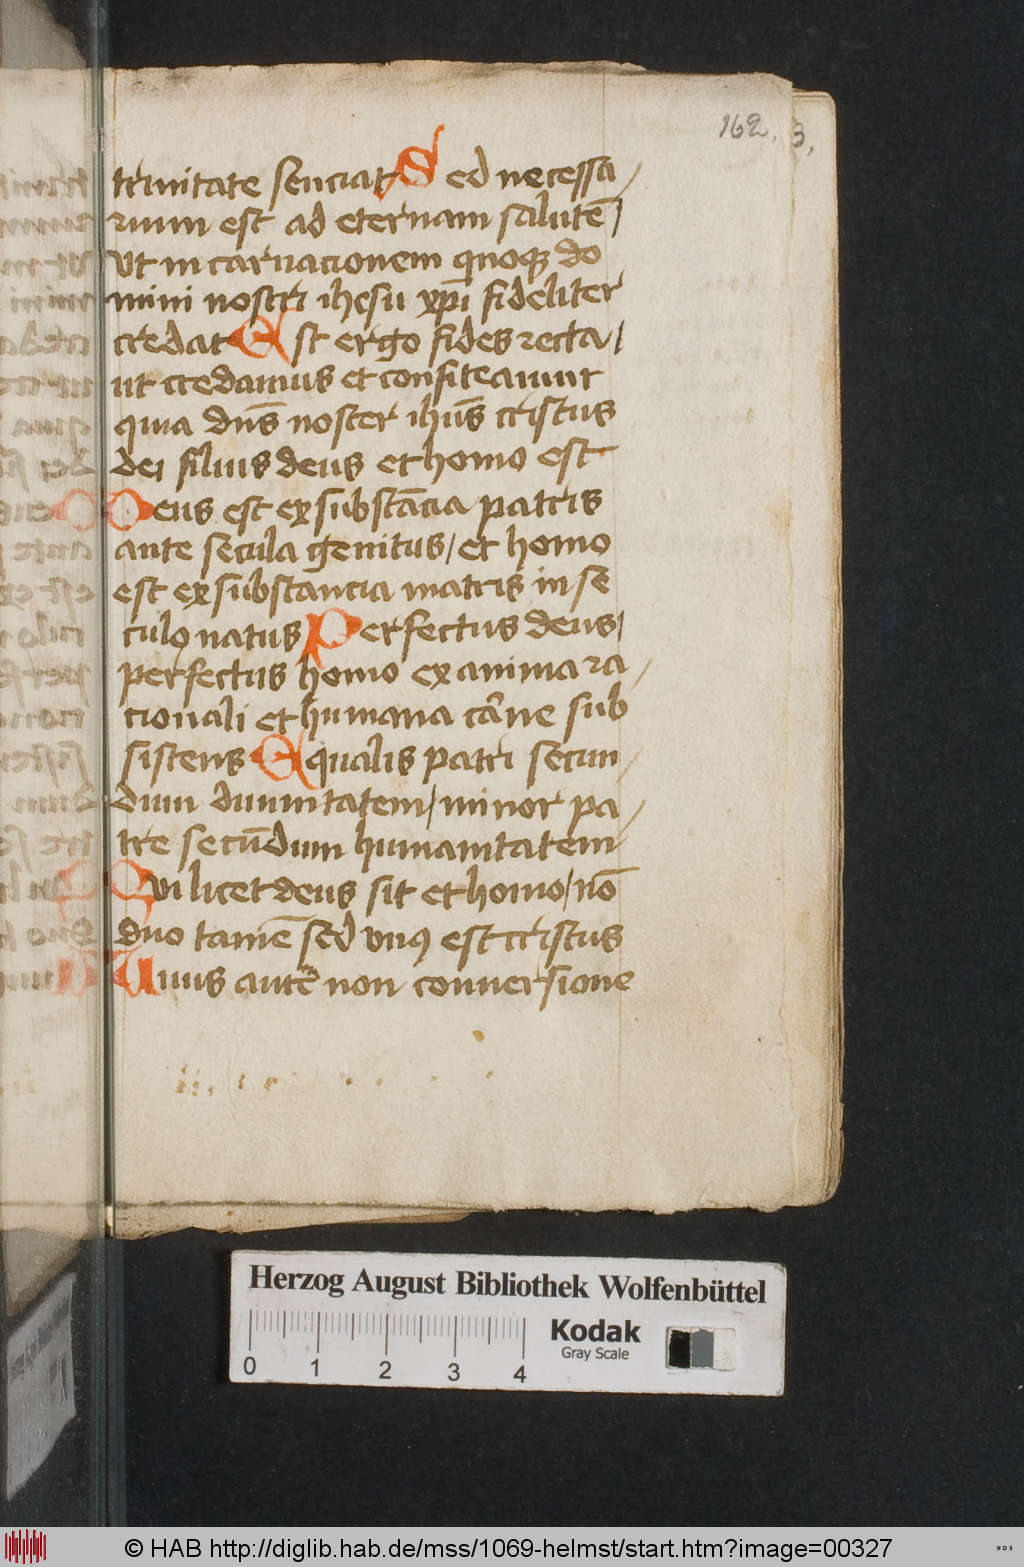 162. 3,
trinitate senciat Sed necessa/
rium est ad eternam salutē/
Vt incarnacionem quoqꝫ do
mini nostri ihesu xp̄i fideliter
credat Est ergo fides recta/
ut credamus et confiteamur
quia dn̄s noster ih̄us cristus
dei filius deus et homo est
Deus est ex substācia patris
ante secula genitus/et homo
est ex substancia matris in se
culo natus Perfectus deus/
perfectus homo ex anima ra/
cionali et humana carne sub
sistens Equalis patri secun/
dum diuinitatem/minor pa/
tre secūdum humanitatem
Qui licet deus sit et homo/nō
duo tamē sed vnꝰ est cristus
Unus autē non conuersione
Herzog August Bibliothek Wolfenbüttel
Kodak
Gray Scale
0 1 2 3 4
© HAB http://diglib.hab.de/mss/1069-helmst/start.htm?image=00327